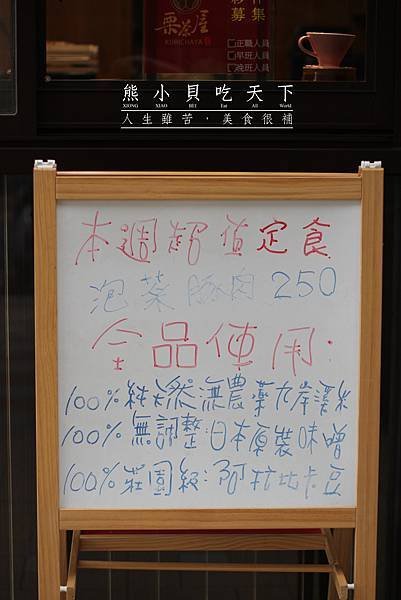 夥伴
募集
栗茶屋
KURICHAYA
正職人員
早班人員
晚班人員
熊小貝吃天下
XIONG XIAO BEI Eat All World
人生雖苦，美食很補
本週超值定食
泡菜豚肉 250
全品使用：
100% 純天然無農藥九岸溪米
100% 無調整：日本原裝味噌
100% 莊園級：阿拉比卡豆